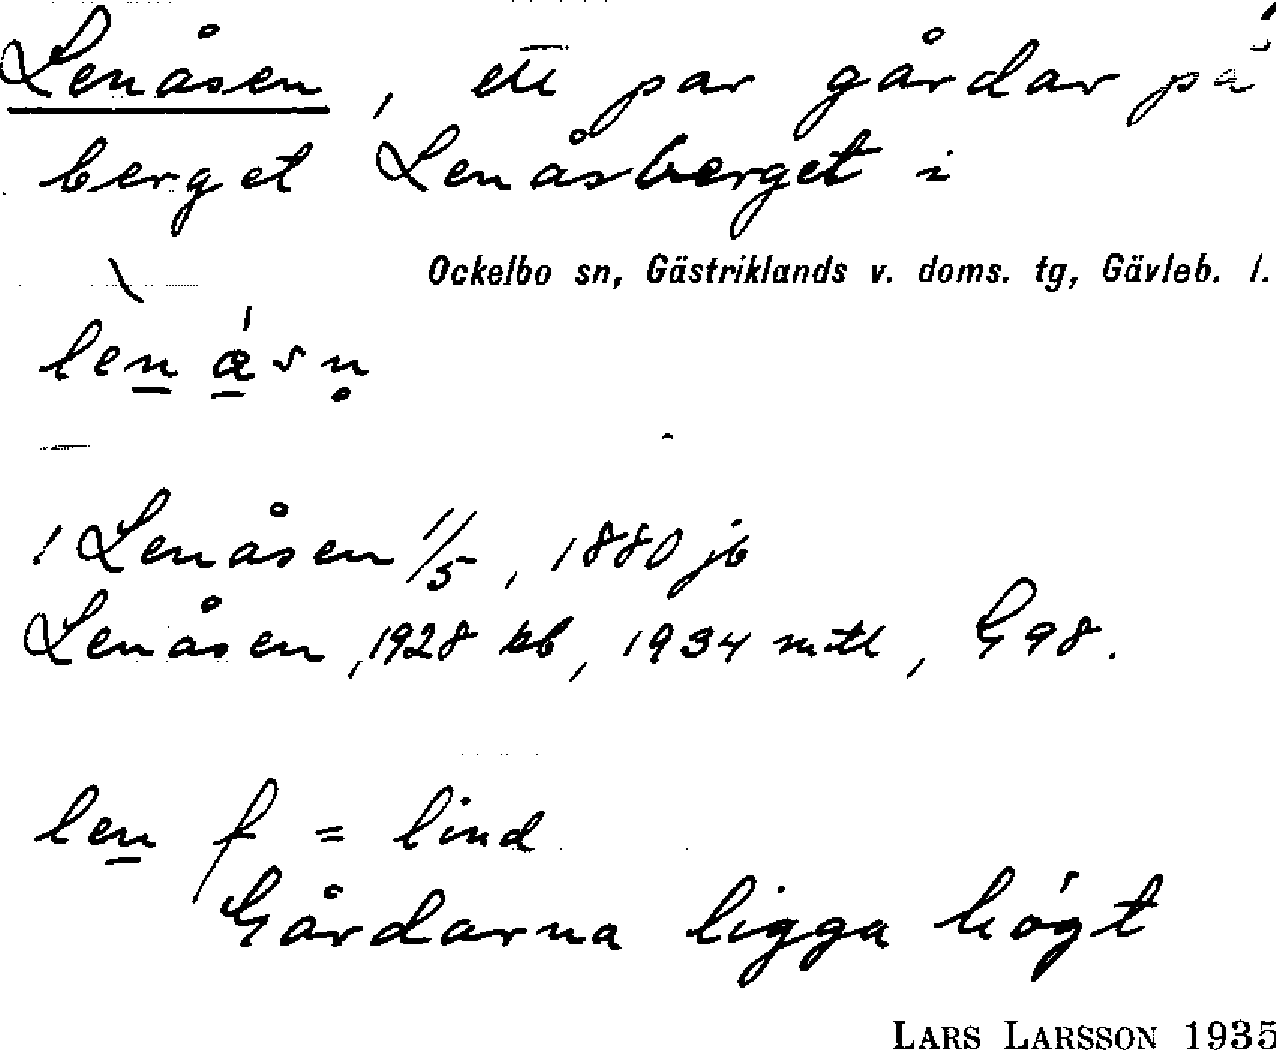 Lenåsen, ett par gårdar på
berget Lenåsberget i
Ockelbo sn, Gästriklands v. doms. tg, Gävleb. l.
lèn ǻsn̥
1 Lenåsen 1/5, 1880 jb
Lenåsen, 1928 kb, 1934 mtl, G98.
len f = lind
Gårdarna ligga högt
LARS LARSSON 1935